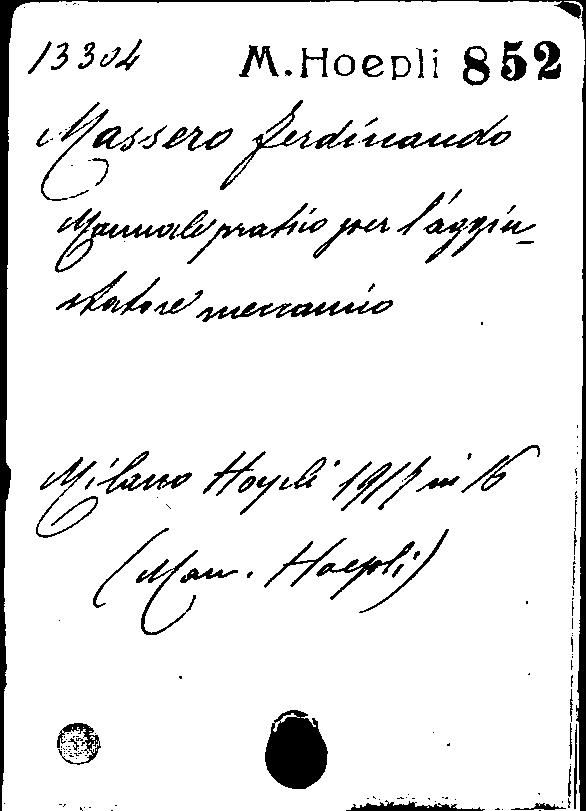 13304 M. Hoepli 852
Massero Ferdinando
Manuale pratico per l'aggiu-
statore meccanico
Milano Hoepli in 16
(Man. Hoepli)